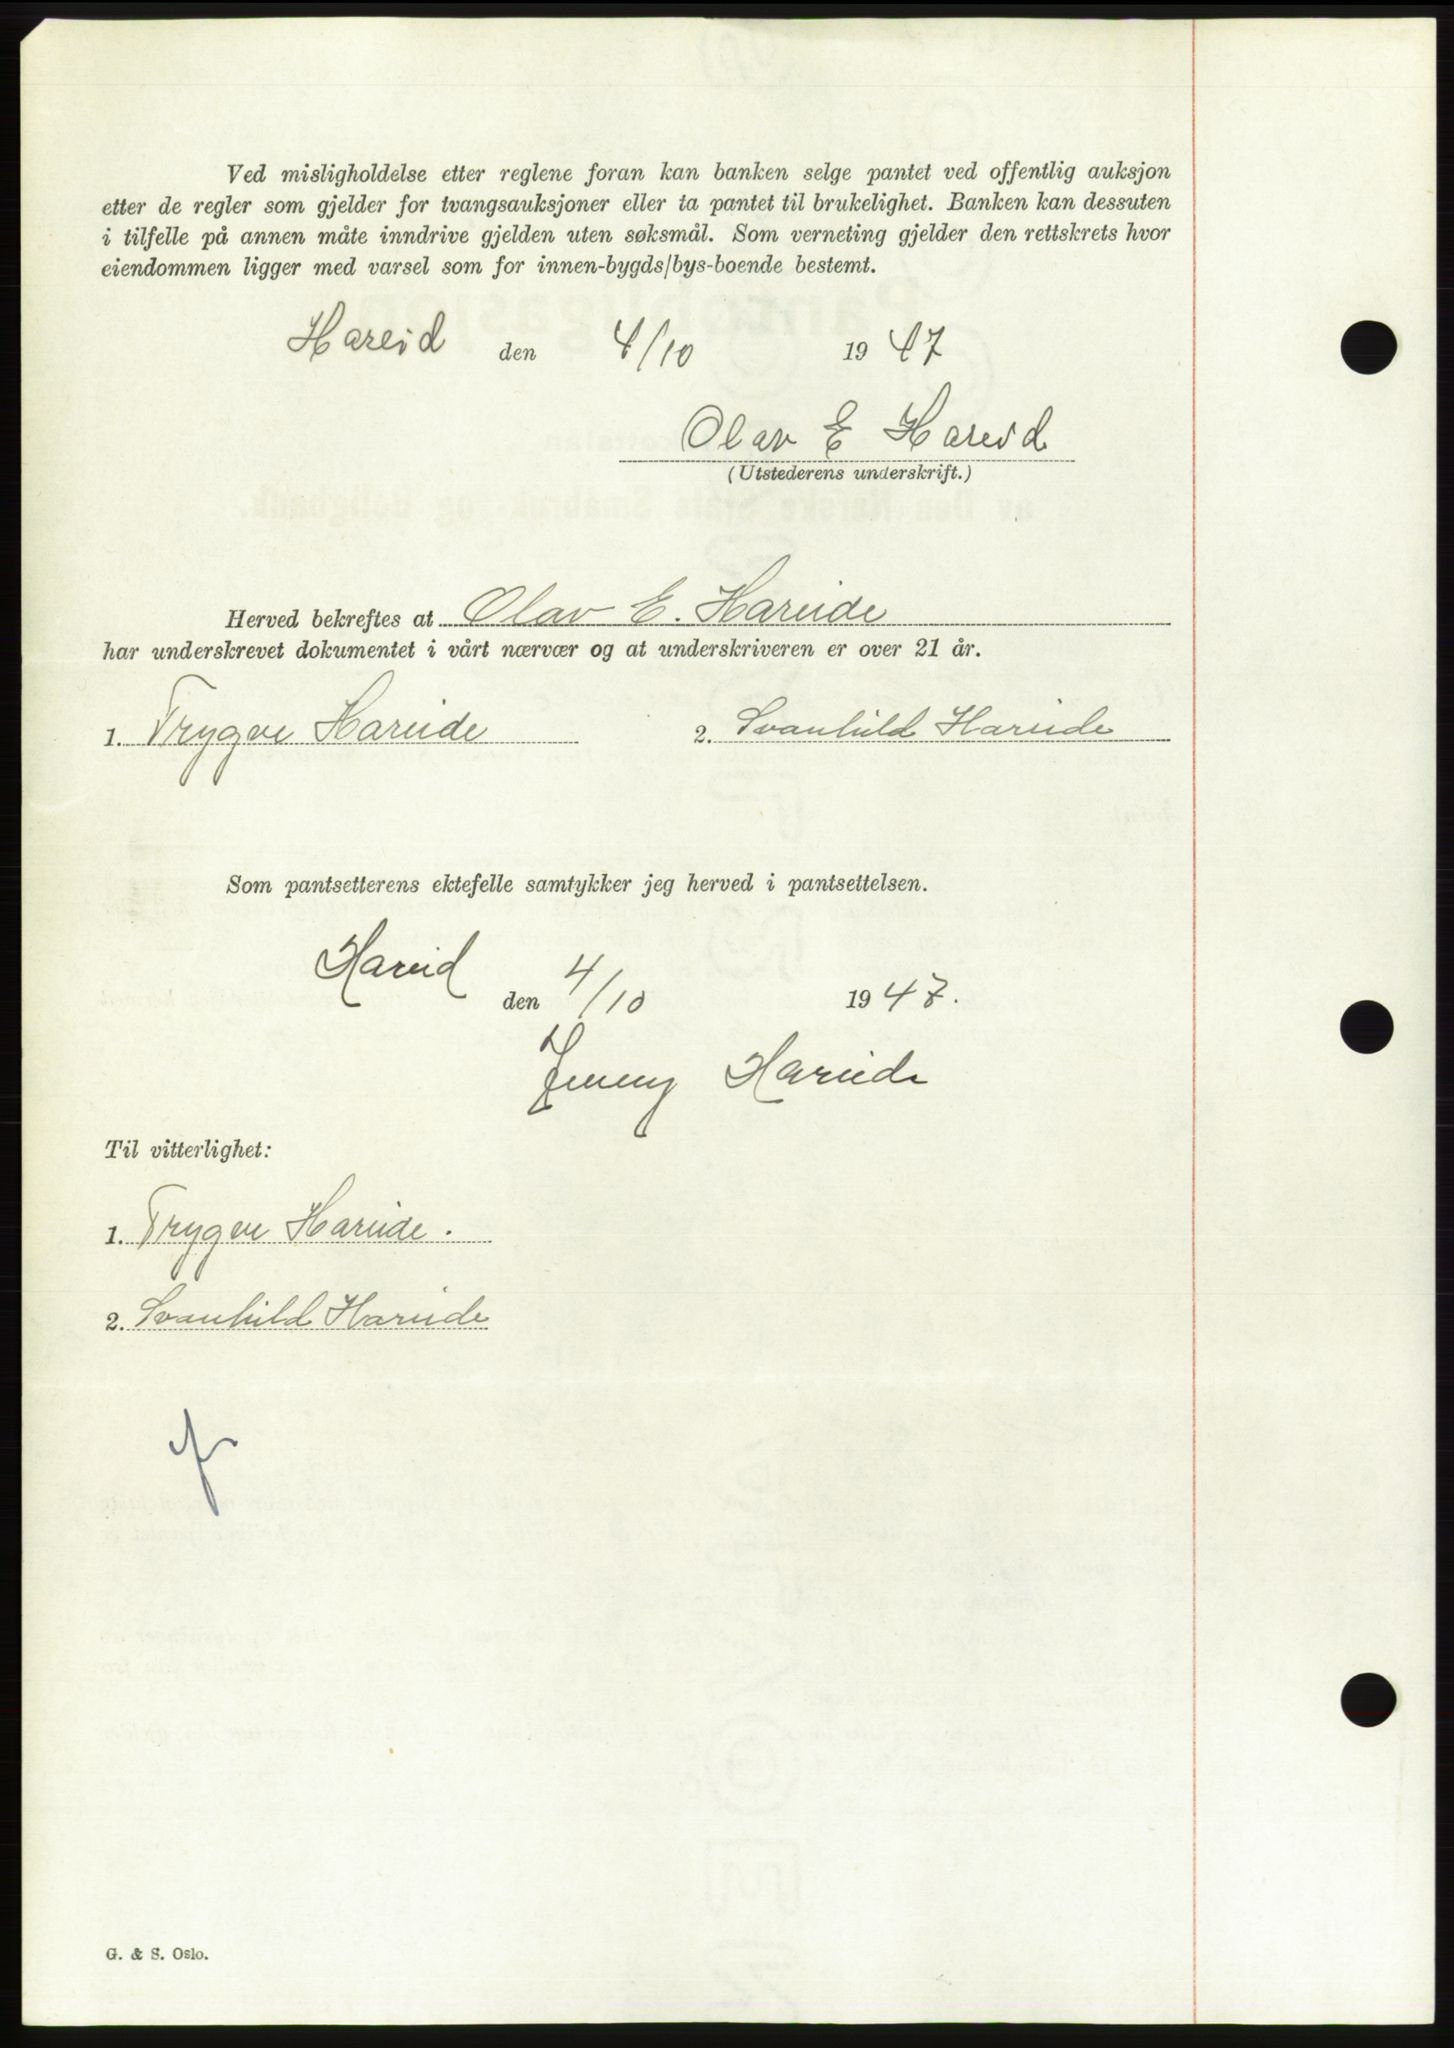 Ved misligholdelse etter reglene foran kan banken selge pantet ved offentlig auksjon
etter de regler som gjelder for tvangsauksjoner eller ta pantet til brukelighet. Banken kan dessuten
i tilfelle på annen måte inndrive gjelden uten søksmål. Som verneting gjelder den rettskrets hvor
eiendommen ligger med varsel som for innen-bygds/bys-boende bestemt.
Hareid den 4/10 1947
Olav E Hareid
(Utstederens underskrift.)
Herved bekreftes at Olav E. Hareide
har underskrevet dokumentet i vårt nærvær og at underskriveren er over 21 år.
1. Trygve Hareide 2. Svanhild Hareide
Som pantsetterens ektefelle samtykker jeg herved i pantsettelsen.
Hareid den 4/10 1947.
Jenny Hareide
Til vitterlighet:
1. Trygve Hareide.
2. Svanhild Hareide
G. & S. Oslo.